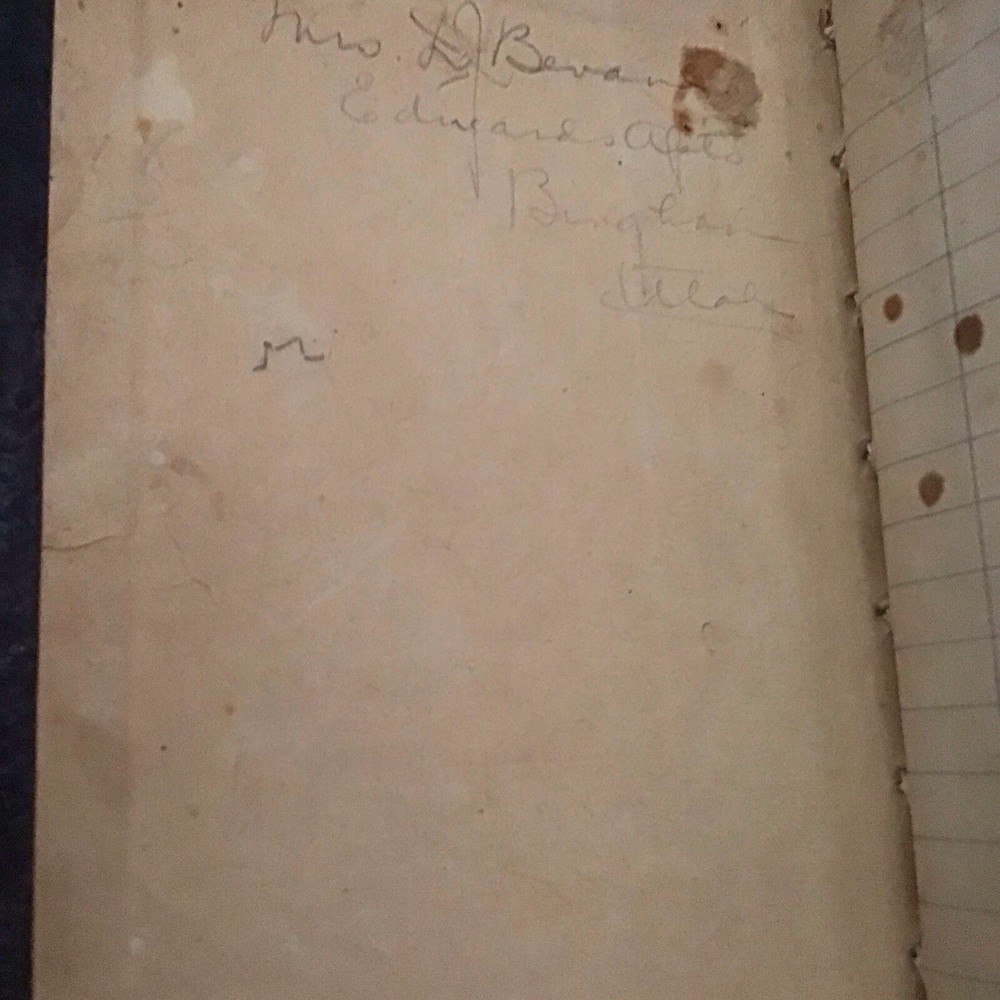 Mrs. D J Bevan
Edwards Apts
Bingham
Utah